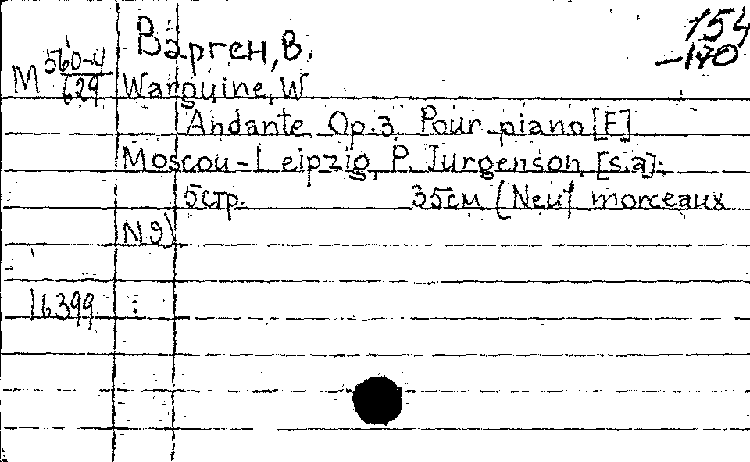 Варген, В.
154
-140
М 560-4
629
Warguine, W
Andante, Op.3 Pour piano [F]
Moscou-Leipzig, P. Jurgenson, [s.a]:
5стр. 35см (Neuf morceaux
N9)
16399